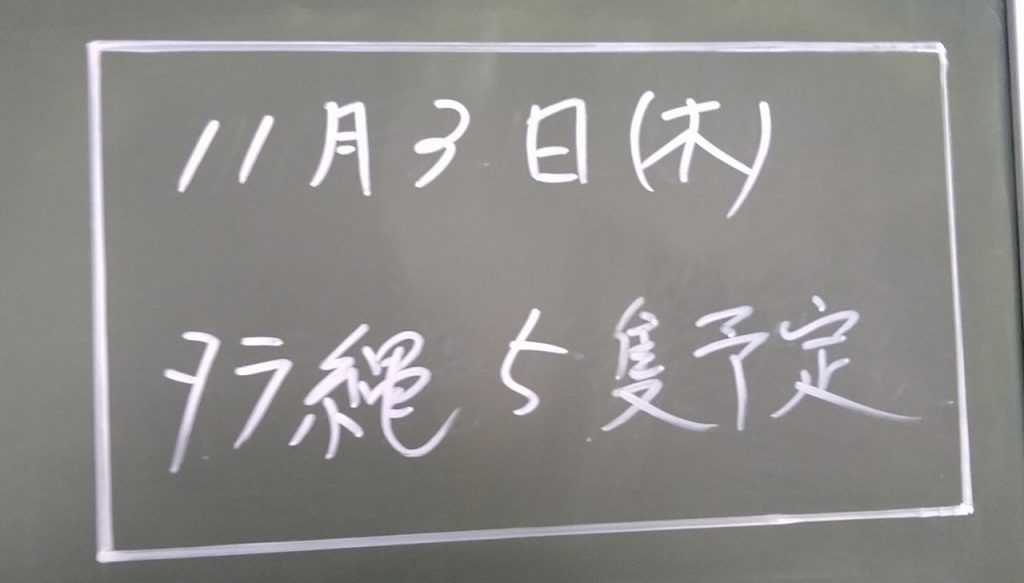 11月3日(木)
タラ縄 5隻予定